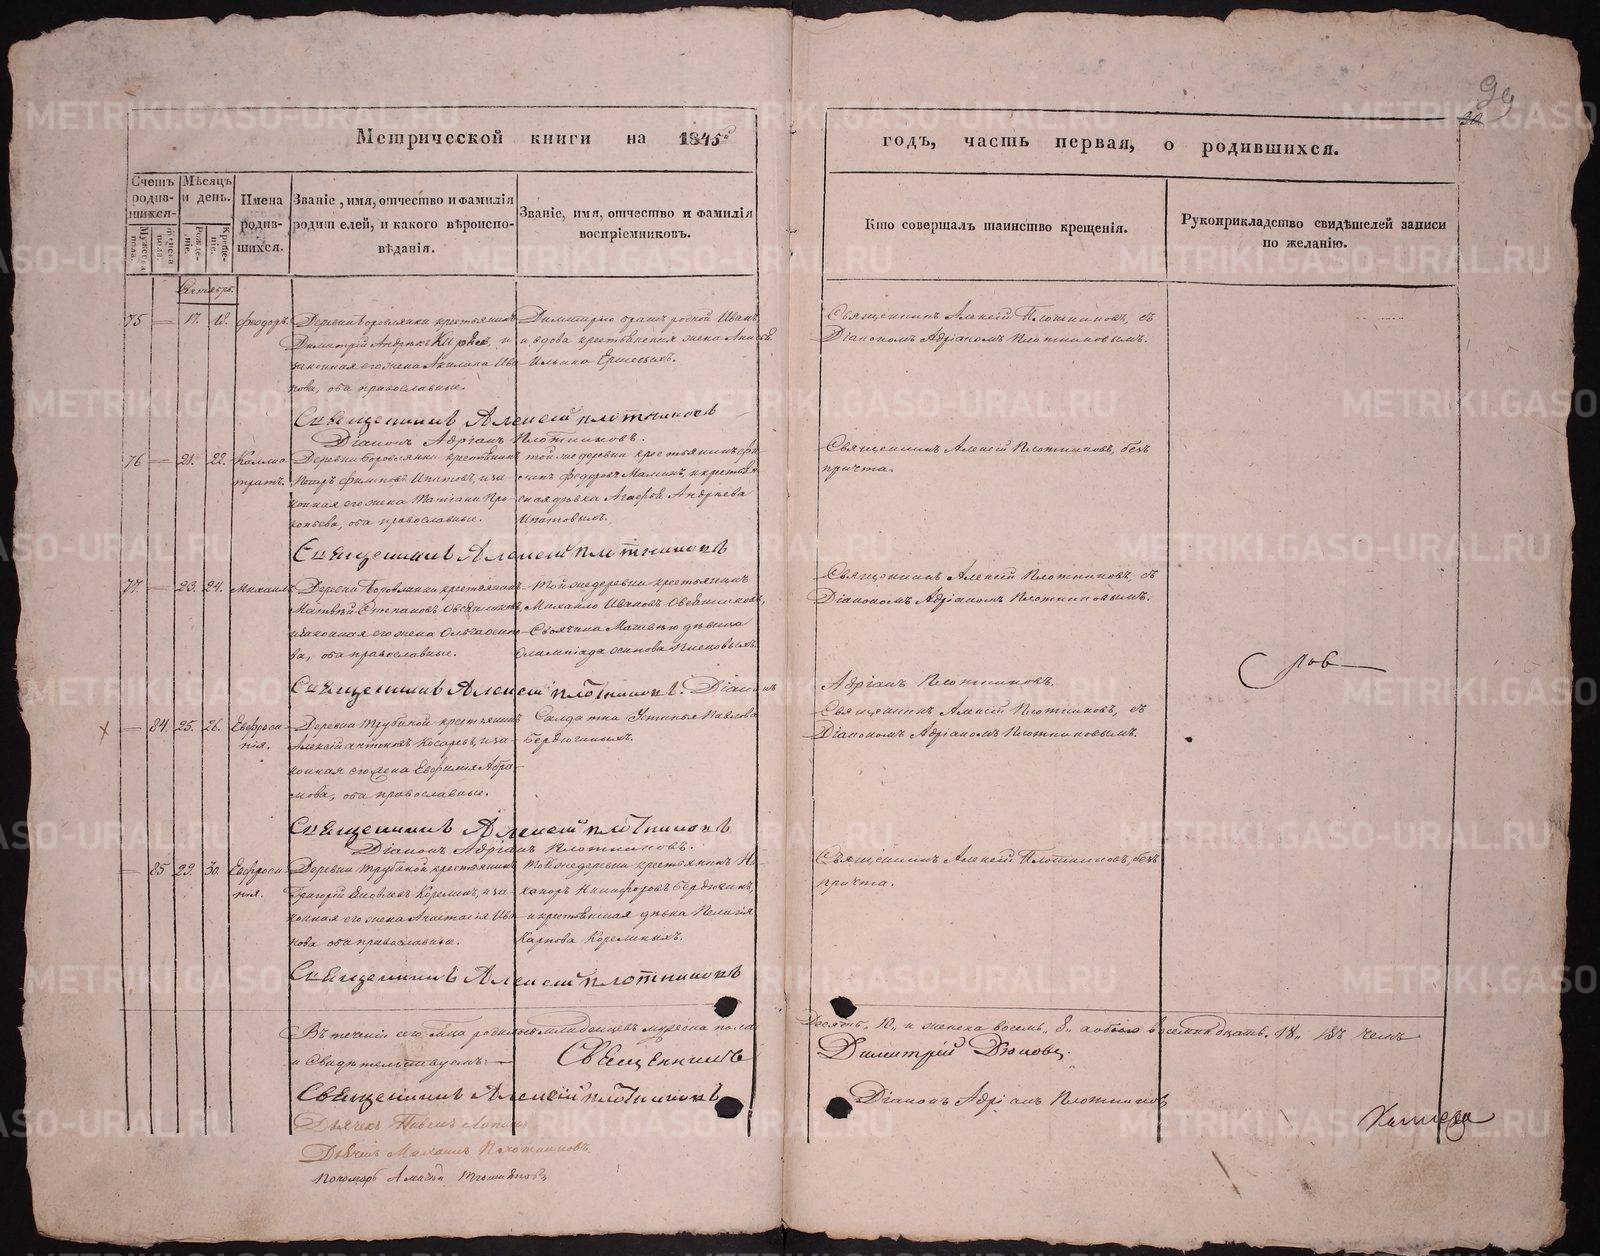 99
30
Метрической книги на 1845й
годъ, часть первая, о родившихся.
Счетъ родив-шихся.
Мѣсяцъ и день.
Имена родив-шихся.
Званіе, имя, отчество и фамилія
родителей, и какого вѣроиспо-
вѣданія.
Званіе, имя, отчество и фамилія
воспріемниковъ.
Кто совершалъ таинство крещенія.
Рукоприкладство свидѣтелей записи
по желанію.
Мужеска пола.
Женска пола.
Рожде-ніе.
Креще-ніе.
Сентябрь.
75 — 17. 18. Феодоръ.
Деревни Боровлянки крестьянинъ
Димитрій Андреевъ и
законная его жена Акилина Ива
нова, оба православные.
Димитрію братъ родной Иванъ
и вдова крестьянская жена
Ильина
Священникъ Алексій Плотниковъ, съ
Діакономъ Адріаномъ Плотниковымъ.
Священникъ Алексій Плотниковъ
Діаконъ Адріанъ Плотниковъ.
76 — 21. 22. Каллис-
тратъ.
Деревни Боровлянки крестьянинъ
Филиповъ Ипатовъ, и за-
конная его жена Татіана Про-
копьева, оба православные.
той же деревни крестьянинъ
Федоровъ Малинъ, и крестьян
ская дѣвка Агафья Андреева
Ипатовыхъ.
Священникъ Алексій Плотниковъ, безъ
причта.
Священникъ Алексій Плотниковъ
77. — 23. 24. Михаилъ
Деревни Боровлянки крестьянинъ
Матвей Степановъ Овсянниковъ,
и законная его жена Ольга Осипо
ва, оба православные.
Той же деревни крестьянинъ
Михайло Ивановъ Овсянниковъ,
Своячина Матвею дѣвица
Олимпіада Осипова
Священникъ Алексій Плотниковъ, съ
Діакономъ Адріаномъ Плотниковымъ.
Священникъ Алексій Плотниковъ. Діаконъ
Адріанъ Плотниковъ.
— 84. 25. 26. Евфроси-
нія.
Деревни Трубиной крестьянинъ
Алексій Антоновъ Косаревъ, и за-
конная его жена Евфимія Абра-
мова, оба православные.
Салдатка Устинья Павлова
Бердюгиныхъ.
Священникъ Алексій Плотниковъ, съ
Діакономъ Адріаномъ Плотниковымъ.
Священникъ Алексій Плотниковъ
Діаконъ Адріанъ Плотниковъ.
— 85 29. 30. Евфроси-
нія.
Деревни Трубиной крестьянинъ
Григорій Яковлевъ Корелинъ, и за-
конная его жена Анастасія Ива-
нова оба православные.
Той же деревни крестьянинъ Ни-
каноръ Никифоровъ Бердюгинъ,
и крестьянская дѣвка Пелагія
Карпова Корелиныхъ.
Священникъ Алексій Плотниковъ, безъ
причта.
Священникъ Алексій Плотниковъ
Въ теченіи сего м-ца родилось младенцевъ мужеска пола
десять „10„ и женска восемь „8„ а обоего восемнадцать „18„ въ чемъ
и Свидѣтельствуемъ: —
Священникъ
Димитрій
Священникъ Алексій Плотниковъ
Діаконъ Адріанъ Плотниковъ
Дьячекъ Павелъ
Дьячекъ Михаилъ Плотниковъ
Пономарь
METRIKI.GASO-URAL.RU